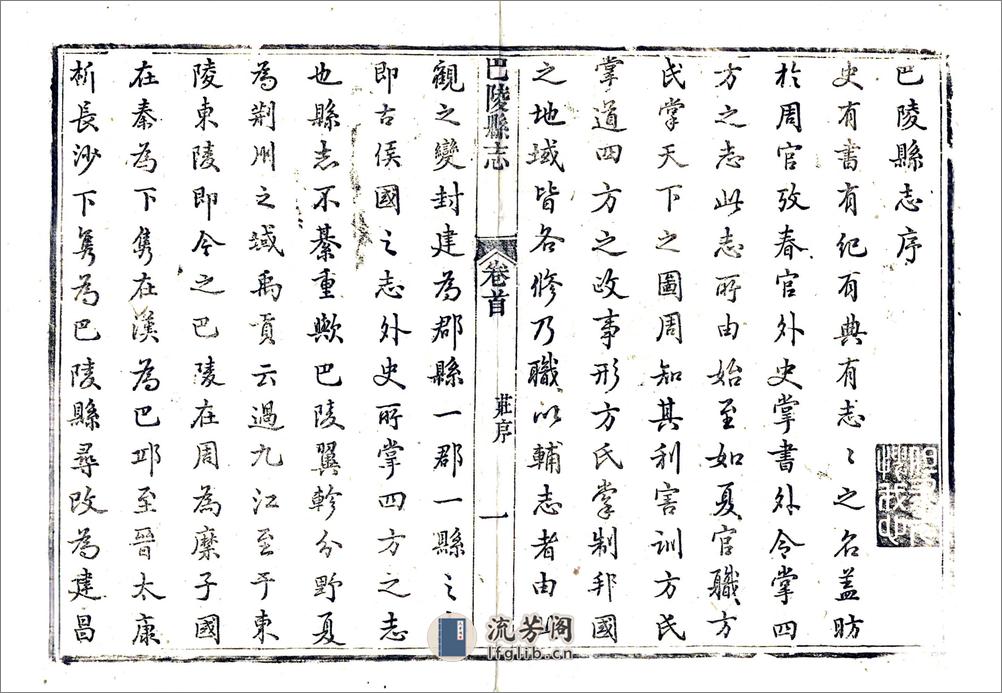 巴陵縣志序
史有書有紀有典有志〻之名蓋昉
於周官攷春官外史掌書外令掌四
方之志此志所由始至如夏官職方
氏掌天下之圖周知其利害訓方氏
掌道四方之政事形方氏掌制邦國
之地域皆各修乃職以輔志者由
巴陵縣志 卷首 莊序 一
觀之變封建為郡縣一郡一縣之
即古侯國之志外史所掌四方之志
也縣志不綦重歟巴陵翼軫分野夏
為荆州之域禹貢云過九江至于東
陵東陵即今之巴陵在周為麋子國
在秦為下雋在漢為巴邱至晉太康
析長沙下雋為巴陵縣尋改為建昌
流芳阁
lfglib.cn